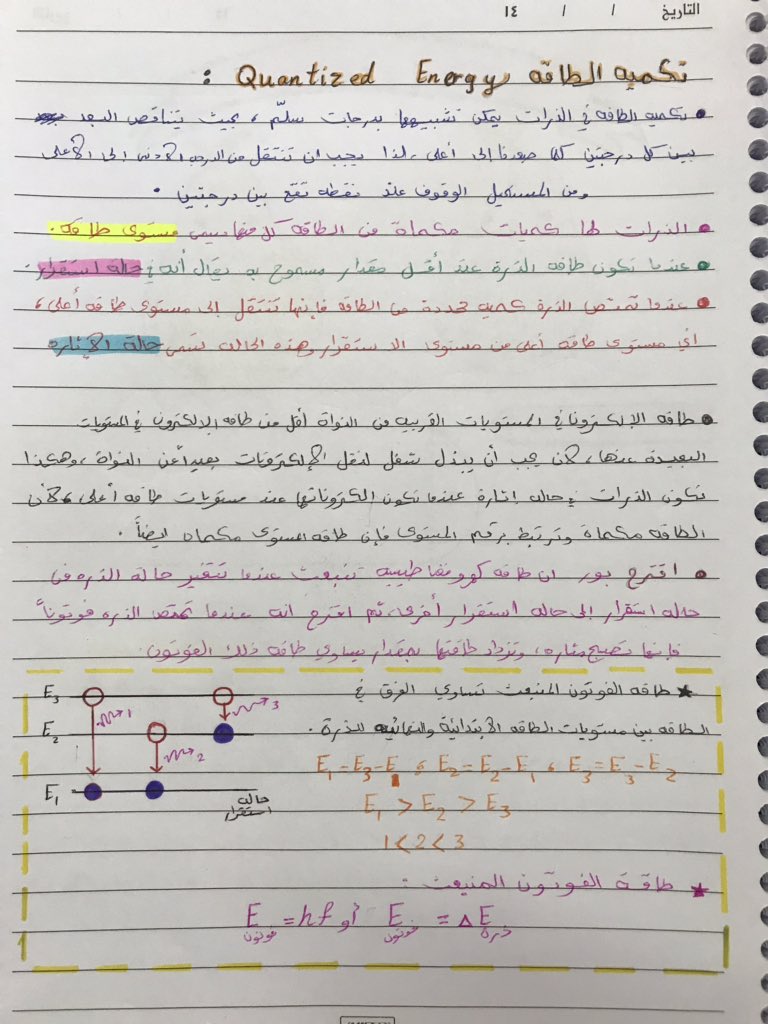 التاريخ / / ١٤
تكميه الطاقه Quantized Energy :
• تكميه الطاقه في الذرات يمكن تشبيهها بدرجات سلّم ، بحيث يتناقص البعد
بين كل درجتين كلما صعدنا إلى أعلى ، لذا يجب ان تنتقل من الدرجه الأدنى الى الأعلى
ومن المستحيل الوقوف عند نقطه تقع بين درجتين .
• الذرات لها كميات مكماة من الطاقه كل منها يسمى مستوى طاقه .
• عندما تكون طاقه الذرة عند أقل مقدار مسموح به يقال أنه في حالة استقرار .
• عندما تمتص الذرة كميه محددة من الطاقه فإنها تنتقل إلى مستوى طاقه أعلى ،
أي مستوى طاقه أعلى من مستوى الاستقرار وهذه الحاله تسمى حالة الإثاره
• طاقه الإلكترونات في المستويات القريبه من النواة أقل من طاقه الإلكترون في المستويات
البعيدة عنها ، لأن يجب أن يبذل شغل لنقل الإلكترونات بعيداً عن النواة ، وهكذا
تكون الذرات في حاله إثارة عندما تكون الكتروناتها عند مستويات طاقه أعلى ، لأن
الطاقه مكماة وترتبط برقم المستوى فإن طاقه المستوى مكماه ايضاً .
• اقترح بور ان طاقه كهرومغناطيسيه تنبعث عندما تتغير حالة الذره من
حاله استقرار إلى حاله استقرار أخرى ، ثم اقترح انه عندما تمتص الذره فوتوناً
فإنها تصبح مثاره ، وتزداد طاقتها بمقدار يساوي طاقه ذلك الفوتون .
★ طاقه الفوتون المنبعث تساوي الفرق في
الطاقه بين مستويات الطاقه الابتدائية والنهائيه للذرة .
E₁ = E₃ - E₁ ، E₂ = E₂ - E₁ ، E₃ = E₃ - E₂
E₁ > E₂ > E₃
1 < 2 < 3
E₃
1
3
E₂
2
E₁
حاله
استقرار
★ طاقة الفوتون المنبعث :
E فوتون = hf أو E فوتون = Δ E ذرة